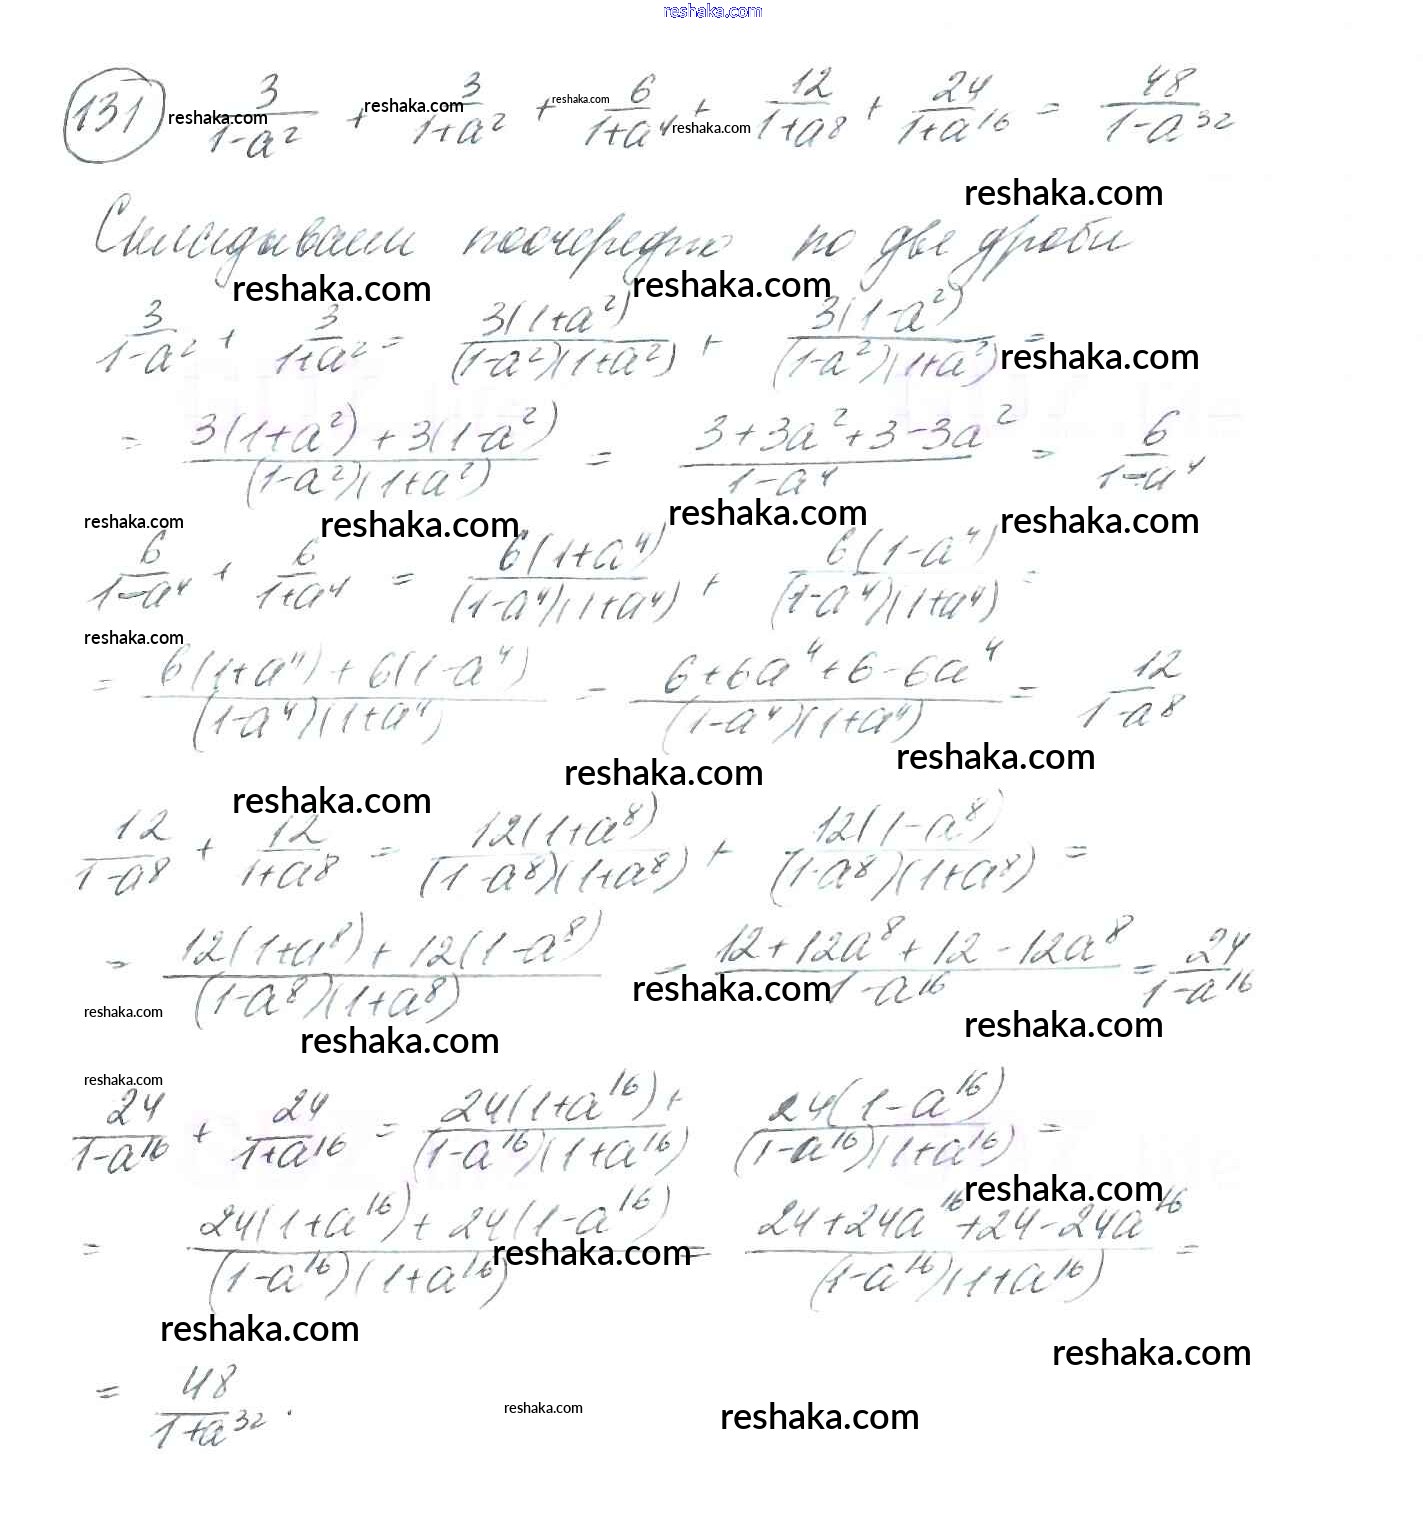 reshaka.com
131 3/(1-a²) + 3/(1+a²) + 6/(1+a⁴) + 12/(1+a⁸) + 24/(1+a¹⁶) = 48/(1-a³²)
reshaka.com reshaka.com reshaka.com reshaka.com
reshaka.com
Складываем поочередно по две дроби
reshaka.com reshaka.com
3/(1-a²) + 3/(1+a²) = 3(1+a²)/((1-a²)(1+a²)) + 3(1-a²)/((1-a²)(1+a²)) =
reshaka.com
= (3(1+a²)+3(1-a²))/((1-a²)(1+a²)) = (3+3a²+3-3a²)/(1-a⁴) = 6/(1-a⁴)
reshaka.com reshaka.com reshaka.com reshaka.com
6/(1-a⁴) + 6/(1+a⁴) = 6(1+a⁴)/((1-a⁴)(1+a⁴)) + 6(1-a⁴)/((1-a⁴)(1+a⁴)) =
reshaka.com
= (6(1+a⁴)+6(1-a⁴))/((1-a⁴)(1+a⁴)) = (6+6a⁴+6-6a⁴)/((1-a⁴)(1+a⁴)) = 12/(1-a⁸)
reshaka.com reshaka.com reshaka.com
12/(1-a⁸) + 12/(1+a⁸) = 12(1+a⁸)/((1-a⁸)(1+a⁸)) + 12(1-a⁸)/((1-a⁸)(1+a⁸)) =
= (12(1+a⁸)+12(1-a⁸))/((1-a⁸)(1+a⁸)) = (12+12a⁸+12-12a⁸)/(1-a¹⁶) = 24/(1-a¹⁶)
reshaka.com reshaka.com reshaka.com reshaka.com
reshaka.com
24/(1-a¹⁶) + 24/(1+a¹⁶) = 24(1+a¹⁶)/((1-a¹⁶)(1+a¹⁶)) + 24(1-a¹⁶)/((1-a¹⁶)(1+a¹⁶)) =
reshaka.com
= (24(1+a¹⁶)+24(1-a¹⁶))/((1-a¹⁶)(1+a¹⁶)) = (24+24a¹⁶+24-24a¹⁶)/((1-a¹⁶)(1+a¹⁶)) =
reshaka.com
reshaka.com reshaka.com
= 48/(1+a³²).
reshaka.com reshaka.com